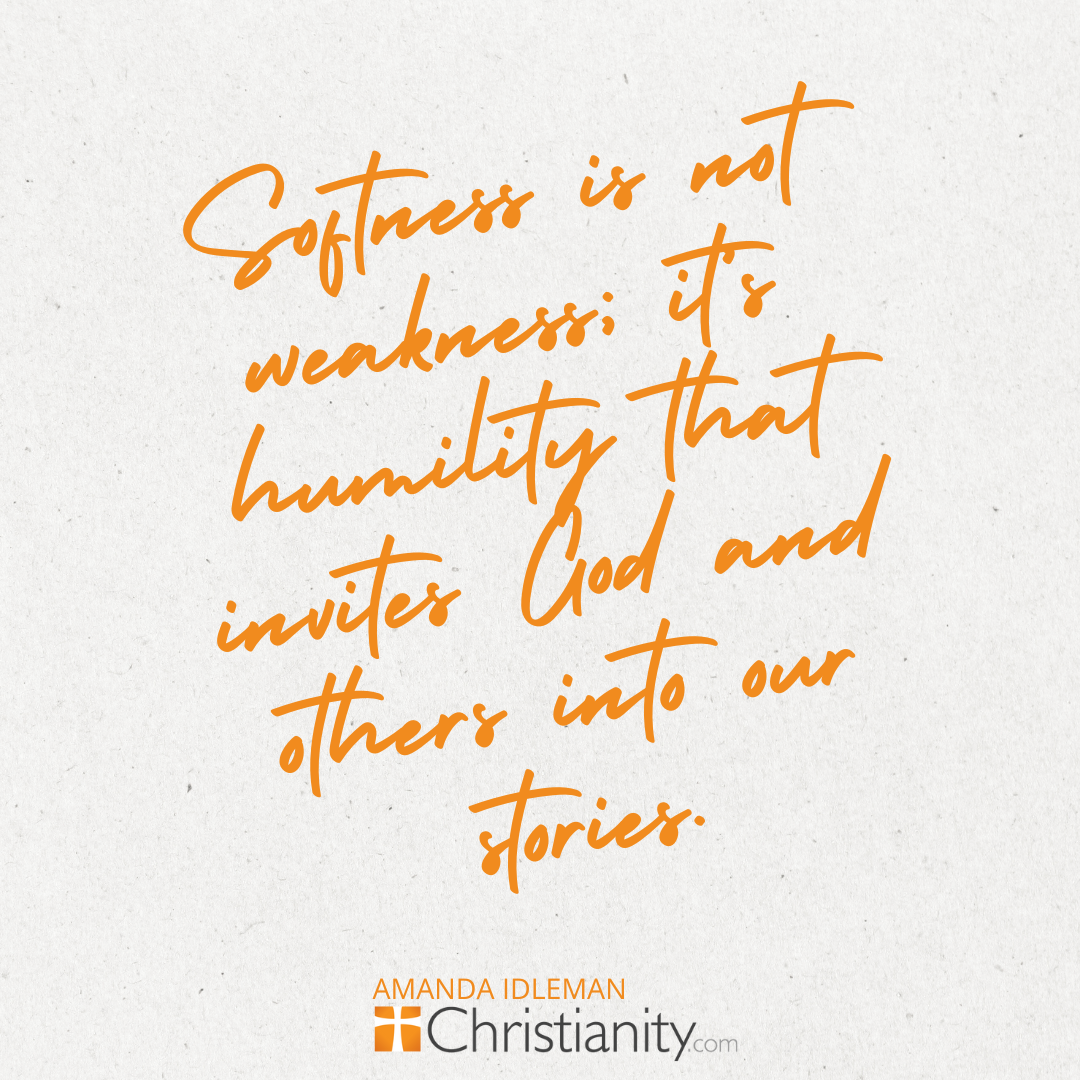 Softness is not
weakness; it's
humility that
invites God and
others into our
stories.
AMANDA IDLEMAN
Christianity.com